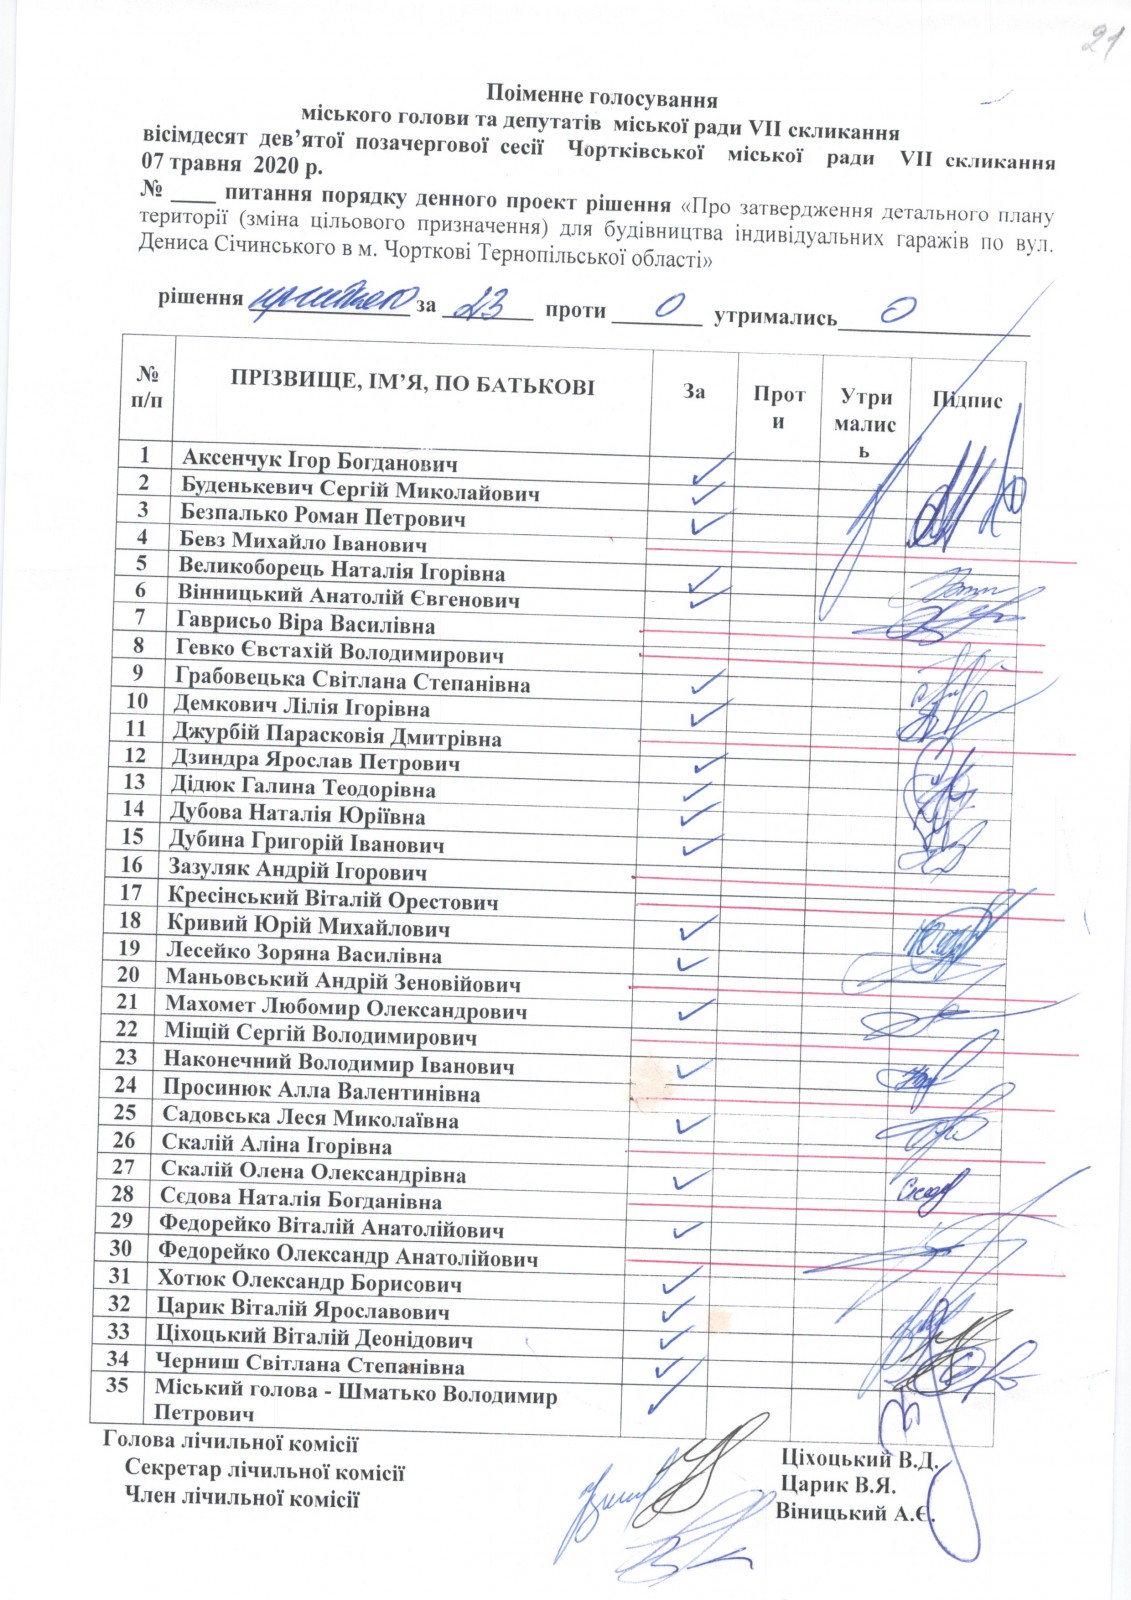 21
Поіменне голосування
міського голови та депутатів міської ради VII скликання
вісімдесят дев’ятої позачергової сесії Чортківської міської ради VII скликання
07 травня 2020 р.
№ ____ питання порядку денного проект рішення «Про затвердження детального плану
території (зміна цільового призначення) для будівництва індивідуальних гаражів по вул.
Дениса Січинського в м. Чорткові Тернопільської області»
рішення прийнято за 23 проти 0 утримались 0
№ п/п ПРІЗВИЩЕ, ІМ’Я, ПО БАТЬКОВІ За Прот и Утри малис ь Підпис
1 Аксенчук Ігор Богданович ✓
2 Буденькевич Сергій Миколайович ✓
3 Безпалько Роман Петрович ✓
4 Бевз Михайло Іванович
5 Великоборець Наталія Ігорівна ✓
6 Вінницький Анатолій Євгенович ✓
7 Гаврисьо Віра Василівна
8 Гевко Євстахій Володимирович
9 Грабовецька Світлана Степанівна ✓
10 Демкович Лілія Ігорівна ✓
11 Джурбій Парасковія Дмитрівна
12 Дзиндра Ярослав Петрович ✓
13 Дідюк Галина Теодорівна ✓
14 Дубова Наталія Юріївна ✓
15 Дубина Григорій Іванович ✓
16 Зазуляк Андрій Ігорович
17 Кресінський Віталій Орестович
18 Кривий Юрій Михайлович ✓
19 Лесейко Зоряна Василівна ✓
20 Маньовський Андрій Зеновійович
21 Махомет Любомир Олександрович ✓
22 Міщій Сергій Володимирович
23 Наконечний Володимир Іванович ✓
24 Просинюк Алла Валентинівна
25 Садовська Леся Миколаївна ✓
26 Скалій Аліна Ігорівна
27 Скалій Олена Олександрівна ✓
28 Сєдова Наталія Богданівна
29 Федорейко Віталій Анатолійович ✓
30 Федорейко Олександр Анатолійович
31 Хотюк Олександр Борисович ✓
32 Царик Віталій Ярославович ✓
33 Ціхоцький Віталій Деонідович ✓
34 Черниш Світлана Степанівна ✓
35 Міський голова - Шматько Володимир ✓
Петрович
Голова лічильної комісії Ціхоцький В.Д.
Секретар лічильної комісії Царик В.Я.
Член лічильної комісії Віницький А.Є.